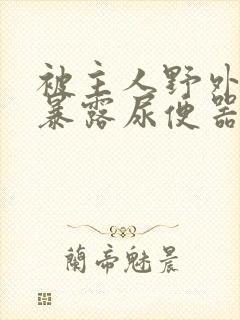 被主人野外
暴露尿便器
蘭帝魅晨